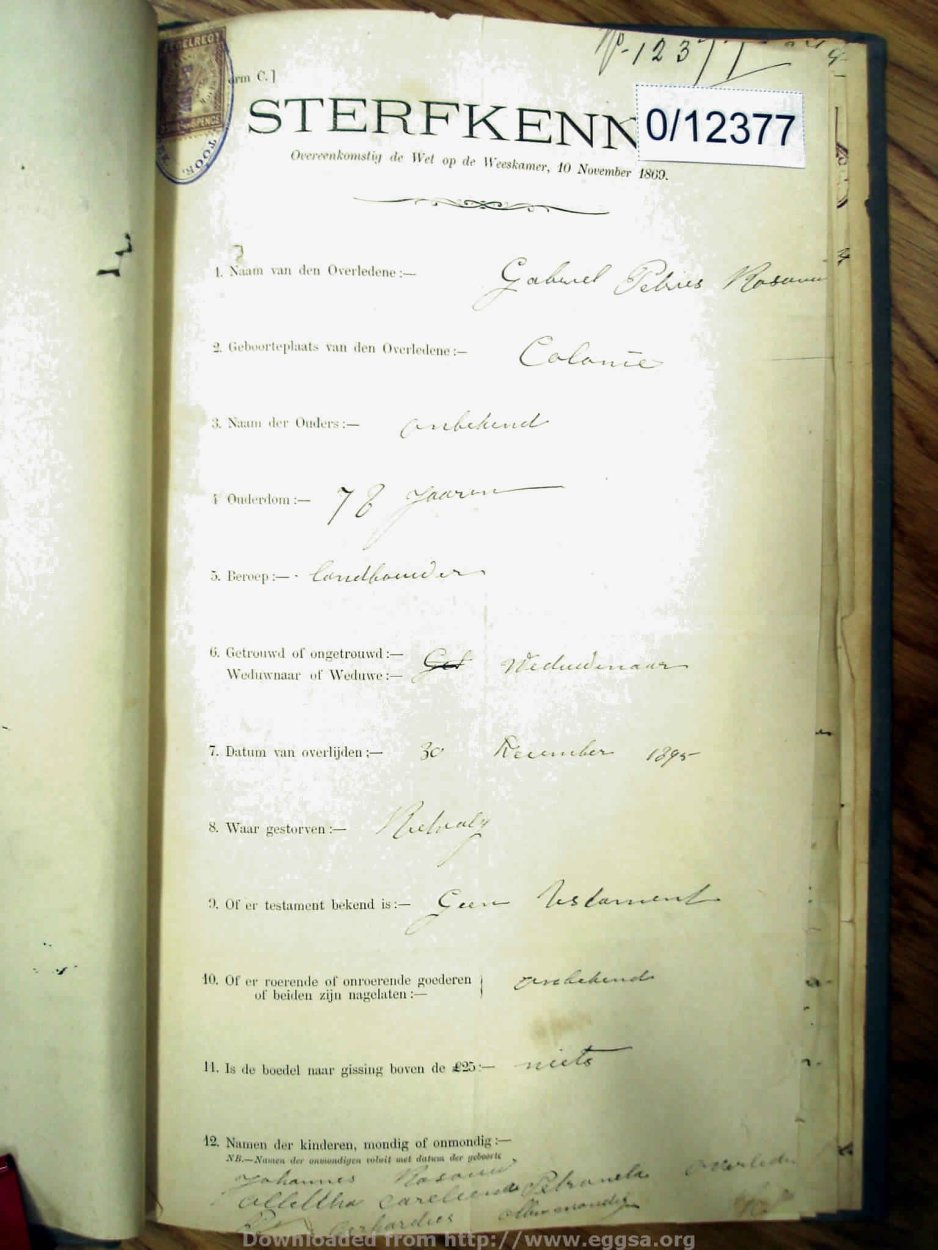 No 12377
ZEGELREGT
orm C.]
STERFKENN
0/12377
Overeenkomstig de Wet op de Weeskamer, 10 November 1869.
1. Naam van den Overledene :— Gabriel Petrus Rosouw
2. Geboorteplaats van den Overledene :— Colonie
3. Naam der Ouders :— onbekend
4 Ouderdom :— 78 Jaaren
5. Beroep :— Landbouwer
6. Getrouwd of ongetrouwd :—
Weduwnaar of Weduwe :— Get Weduwenaar
7. Datum van overlijden :— 30 December 1895
8. Waar gestorven :— Rietvaly
9. Of er testament bekend is :— Geen Testament
10. Of er roerende of onroerende goederen
of beiden zijn nagelaten :— onbekend
11. Is de boedel naar gissing boven de £25 :— niets
12. Namen der kinderen, mondig of onmondig :—
NB.—Namen der onmondigen voluit met datum der geboorte
Johannes Rosouw
Allettha Petronela overleden
Gerhardus
Downloaded from http://www.eggsa.org